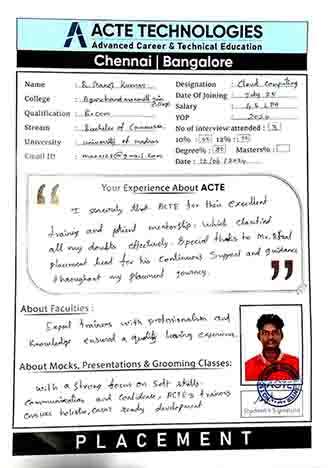 ACTE TECHNOLOGIES
Advanced Career & Technical Education
Chennai | Bangalore
Name : Kumar
Designation : Cloud Computing
College :
Date Of Joining : July 25
Qualification : B.com
Salary : 4.5 LPA
Stream : Bachelor of Commerce
YOP :
University : university of madras
No of interview attended :
Email ID :
10% : 12% :
Degree% : Masters% :
Date :
Your Experience About ACTE
I sincerely ACTE for their excellent
training and mentorship. Which clarified
all my doubts effectively. Special thanks to Mr.
Placement head for his Continuous Support and guidance
throughout my placement journey.
About Faculties :
Expert trainers with professionalism and
Knowledge ensured a quality learning experience.
About Mocks, Presentations & Grooming Classes:
With a strong focus on soft skills
communication and Confidence, ACTE's trainers
ensures holistic, career ready development
ACTE
Student's Signature
PLACEMENT